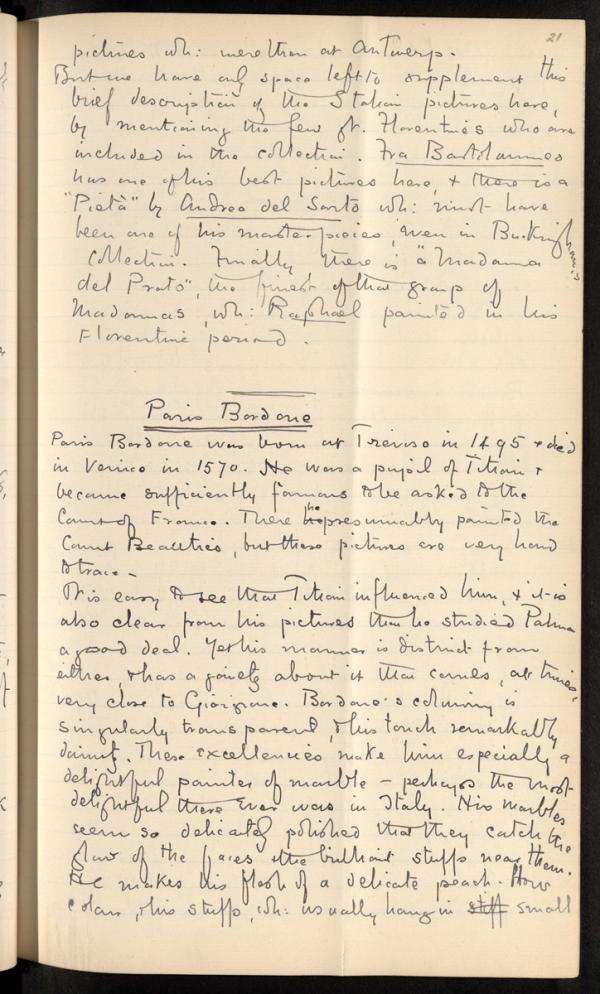 21
pictures wh: were then at Antwerp.
But we have only space left to supplement this
brief description of the Italian pictures here,
by mentioning the few gt. Florentines who are
included in the collection. Fra Bartolommeo
has one of his best pictures here, & there is a
"Pietà" by Andrea del Sarto wh: must have
been one of his masterpieces, even in Buckingham's
Collection. Finally there is "a Madonna
del Prato", the finest of that group of
Madonnas wh: Raphael painted in his
Florentine period.
Paris Bordone
Paris Bordone was born at Treviso in 1495 & died
in Venice in 1570. He was a pupil of Titian &
became sufficiently famous to be asked to the
Court of France. There he presumably painted the
Court Beauties, but these pictures are very hard
to trace.
It is easy to see that Titian influenced him, & it is
also clear from his pictures that he studied Palma
a good deal. Yet his manner is distinct from
either, & has a gaiety about it that comes, at times,
very close to Giorgione. Bordone's colouring is
singularly transparent, & his touch remarkably
dainty. These excellencies make him especially a
delightful painter of marble – perhaps the most
delightful there ever was in Italy. His marbles
seem so delicately polished that they catch the
glow of the faces & the brilliant stuffs near them.
He makes his flesh of a delicate peach.
colour, & his stuffs, wh: usually hang in stiff small